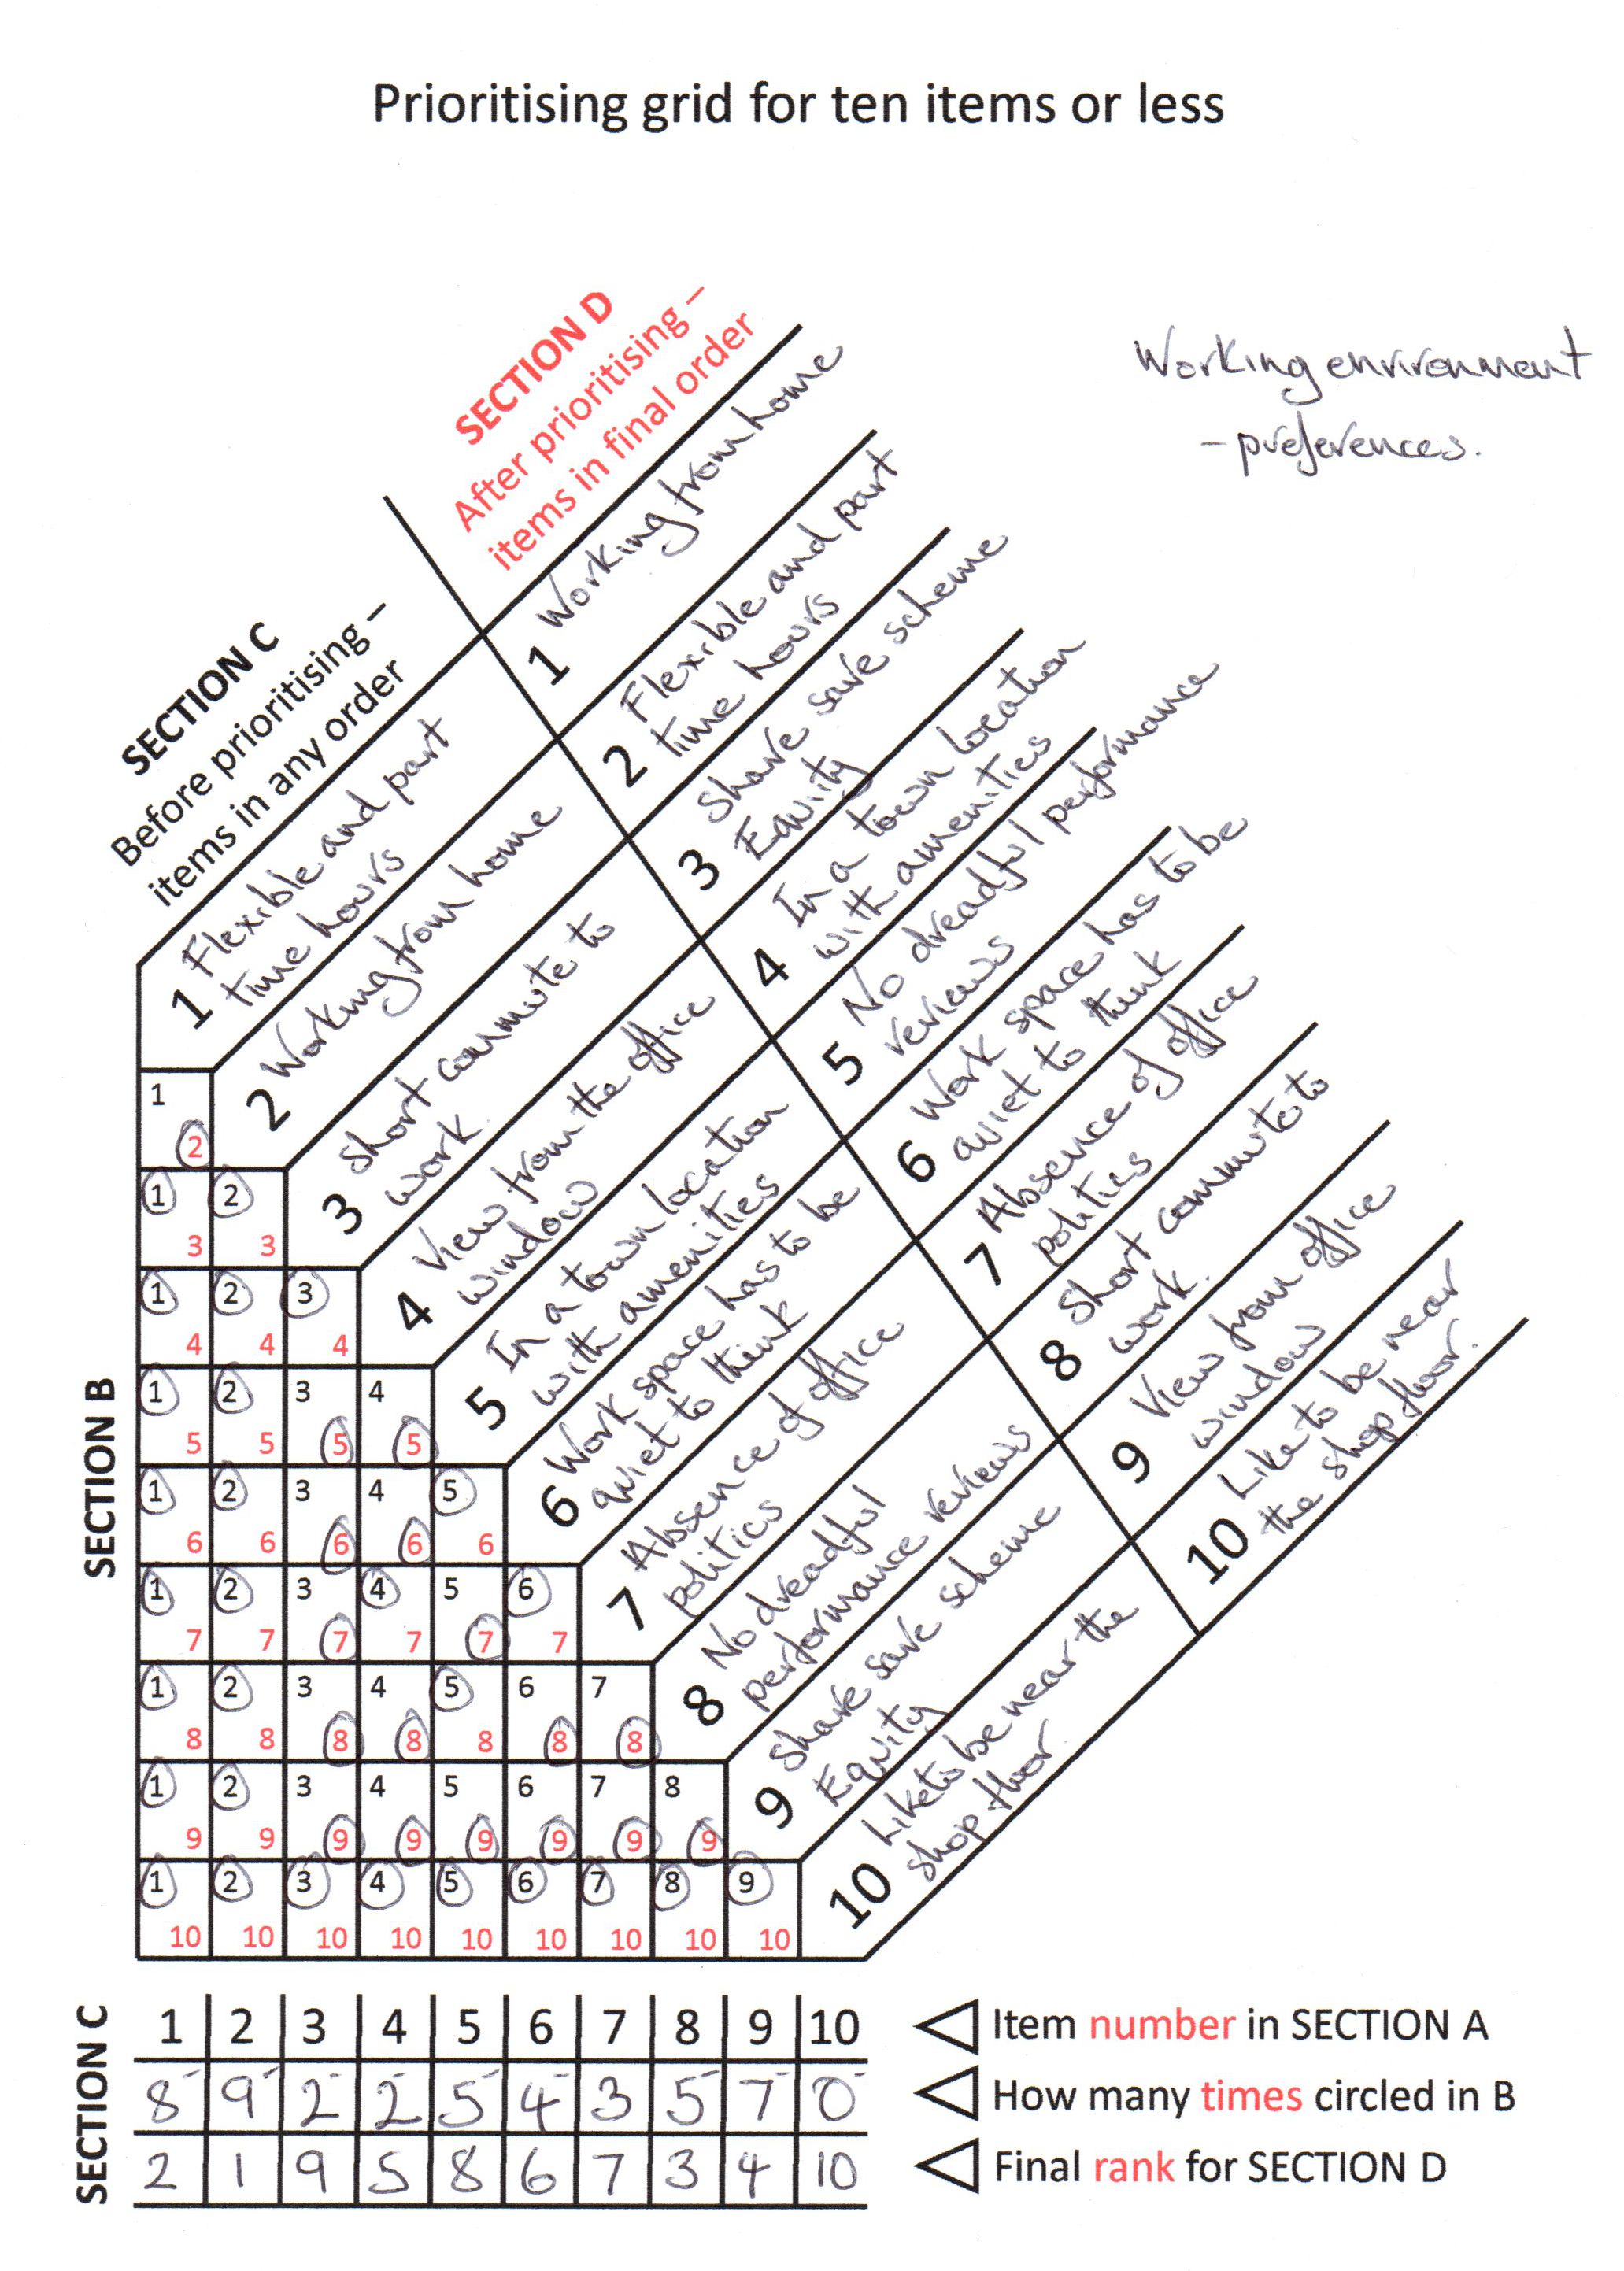 Prioritising grid for ten items or less
Working environment
- preferences.
SECTION D
After prioritising –
items in final order
1 Working from home
2 Flexible and part
time hours
3 Share save scheme
Equity
4 In a town location
with amenities
5 No dreadful performance
reviews
6 Work space has to be
quiet to think
7 Absence of office
politics
8 Short commute to
work.
9 View from office
window
10 Like to be near
the shop floor.
SECTION C
Before prioritising –
items in any order
1 Flexible and part
time hours
2 Working from home
3 Short commute to
work.
4 View from the office
window
5 In a town location
with amenities
6 Work space has to be
quiet to think
7 Absence of office
politics
8 No dreadful
performance reviews
9 Share save scheme
Equity
10 Like to be near the
shop floor
SECTION B
1
2
1 2
3 3
1 2 3
4 4 4
1 2 3 4
5 5 5 5
1 2 3 4 5
6 6 6 6 6
1 2 3 4 5 6
7 7 7 7 7 7
1 2 3 4 5 6 7
8 8 8 8 8 8 8
1 2 3 4 5 6 7 8
9 9 9 9 9 9 9 9
1 2 3 4 5 6 7 8 9
10 10 10 10 10 10 10 10 10
SECTION C
1 2 3 4 5 6 7 8 9 10 Item number in SECTION A
8 9 2 2 5 4 3 5 7 0 How many times circled in B
2 1 9 5 8 6 7 3 4 10 Final rank for SECTION D